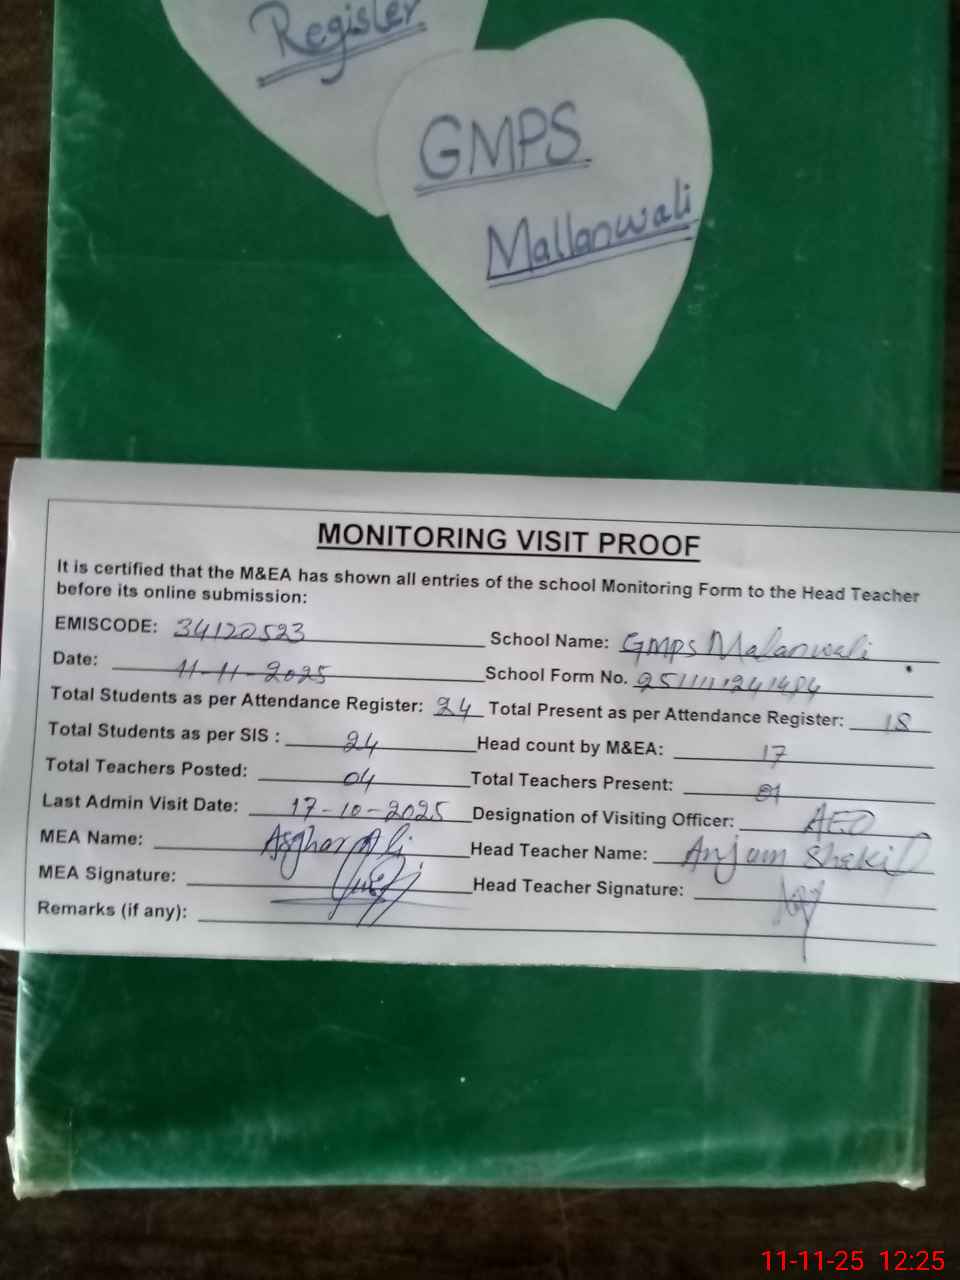 Register
GMPS
Mallanwali
MONITORING VISIT PROOF
It is certified that the M&EA has shown all entries of the school Monitoring Form to the Head Teacher
before its online submission:
EMISCODE: 34120523 School Name: GMPS Malanwali
Date: 11-11-2025 School Form No. 2511111241484
Total Students as per Attendance Register: 24 Total Present as per Attendance Register: 18
Total Students as per SIS : 24 Head count by M&EA: 17
Total Teachers Posted: 04 Total Teachers Present:
Last Admin Visit Date: 17-10-2025 Designation of Visiting Officer: AEO
MEA Name: Asghar Ali Head Teacher Name: Anjum Shakil
MEA Signature: Head Teacher Signature:
Remarks (if any):
11-11-25 12:25